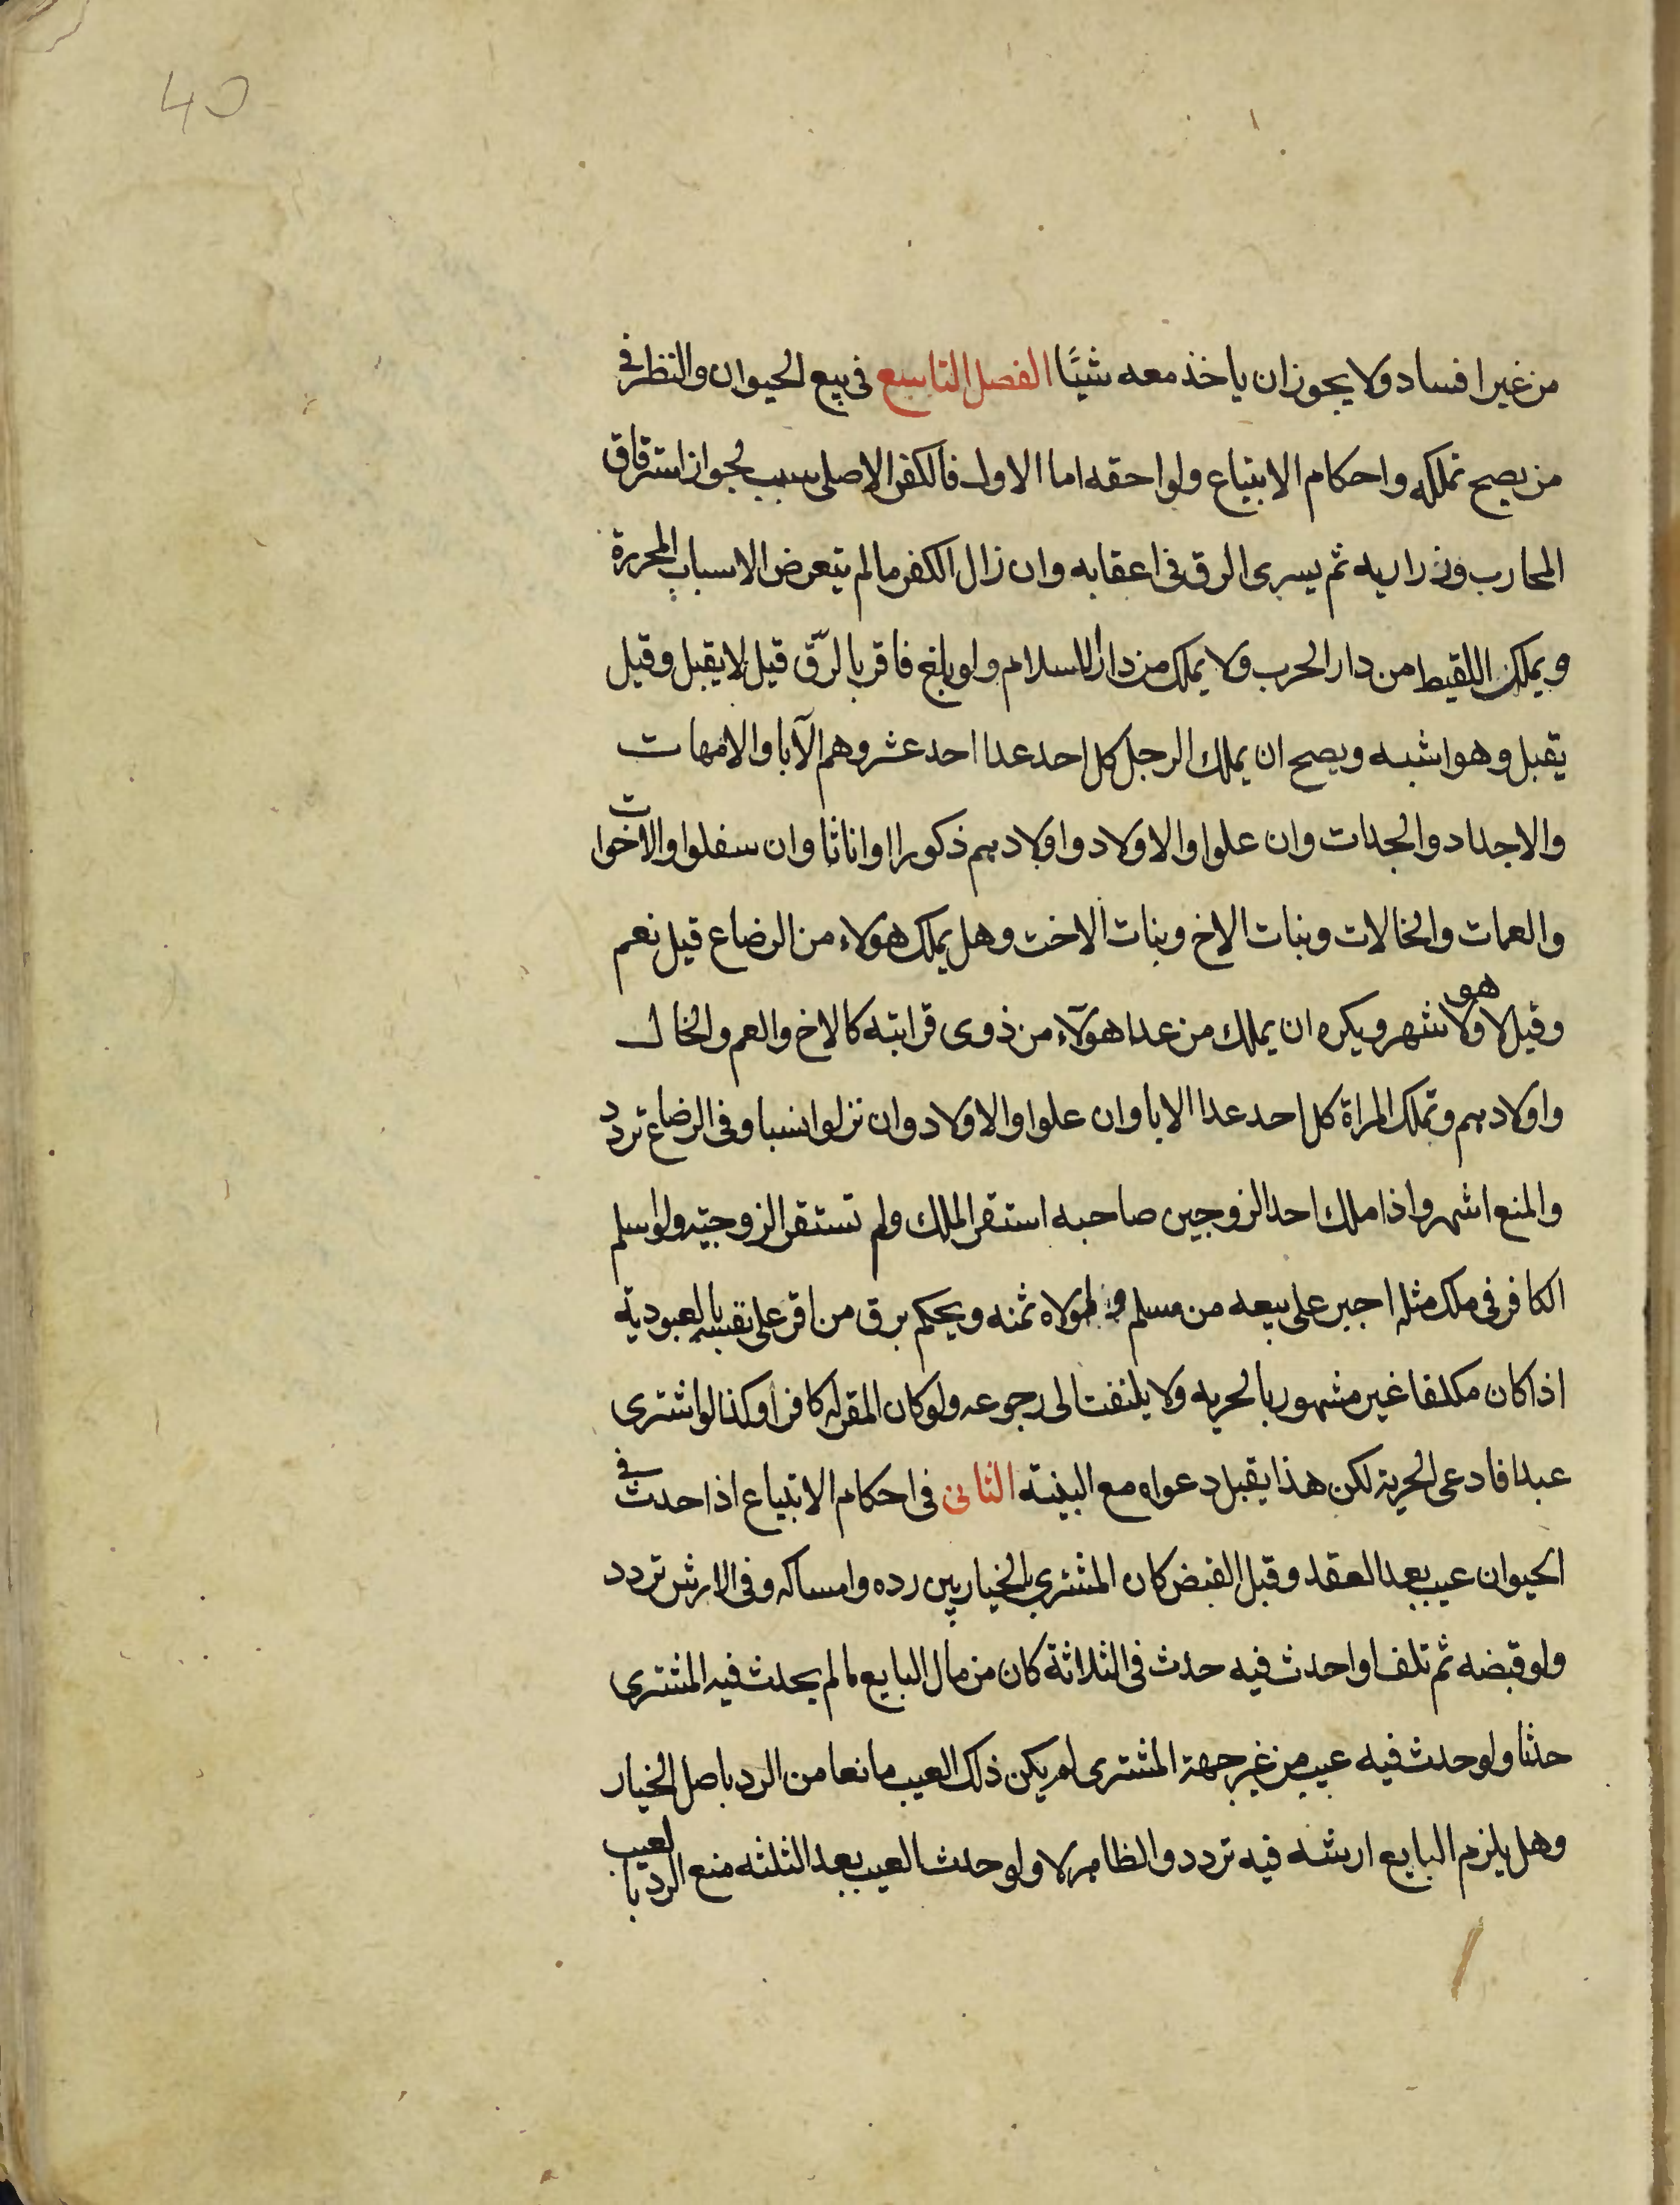 40
من غير افساد ولا يجوز ان ياخذ معه شيئا الفصل التاسع في بيع الحيوان والنظر في
من يصح تملكه واحكام الابتياع ولواحقه اما الاول فالكفر الاصلي سبب لجواز استرقاق
المحارب وذراريه ثم يسري الرق في اعقابه وان زال الكفر ما لم يتعرض الاسباب المحررة
ويملك اللقيط من دار الحرب ولا يملك من دار الاسلام ولو بلغ فاقر بالرّق قيل لا يقبل وقيل
يقبل وهو اشبه ويصح ان يملك الرجل كل احد عدا احد عشر وهم الآبا والامهات
والاجداد والجدات وان علوا والاولاد واولادهم ذكورا اواناثا وان سفلوا والاخوات
والعمات والخالات وبنات الاخ وبنات الاخت وهل يملك هولاء من الرضاع قيل نعم
وقيل لا وهو الاشهر ويكره ان يملك من عدا هولآء من ذوى قرابته كالاخ والعم والخال
واولادهم وتملك المراة كل احد عدا الابا وان علوا والاولاد وان نزلوا نسبا وفى الرضاع تردد
والمنع اشهر واذا ملك احد الزوجين صاحبه استقر الملك ولم تستقر الزوجيّه ولو اسلم
الكافر فى ملك مثله اجبر على بيعه من مسلم ولمولاه ثمنه ويحكم برق من اقر على نفسه بالعبودية
اذا كان مكلفا غير مشهور بالحريه ولا يلتفت الى رجوعه ولو كان المقر له كافرا وكذا لو اشترى
عبدا فادعى الحرية لكن هذا يقبل دعواه مع البينة الثانى فى احكام الابتياع اذا حدث في
الحيوان عيب بعد العقد وقبل القبض كان المشتري بالخيار بين رده وامساكه وفى الارش تردد
ولو قبضه ثم تلف او احدث فيه حدث فى الثلاثة كان من مال البايع ما لم يحدث فيه المشترى
حدثا ولو حدث فيه عيب من غير جهة المشترى لم يكن ذلك العيب مانعا من الرد باصل الخيار
وهل يلزم البايع ارشه فيه تردد والظاهر لا ولو حدث العيب بعد الثلثه منع الرد بالعيب